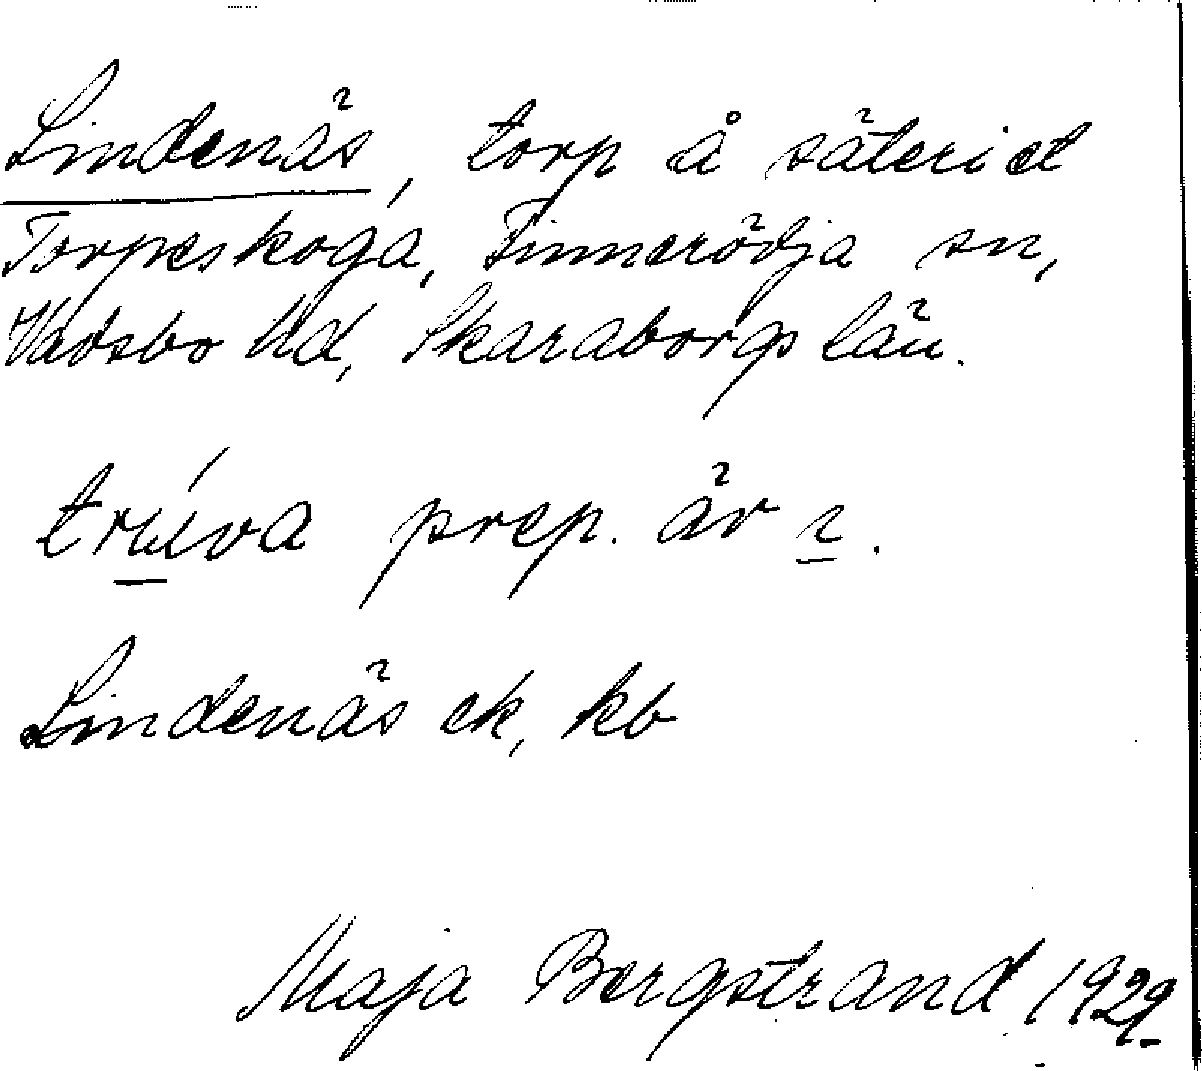 Lindenäs, torp å säteriet
Torpeskoga, Finnerödja sn,
Vadsbo hd, Skaraborgs län.
prep. är ı.
Lindenäs ek, kb
Maja Bergstrand 1929